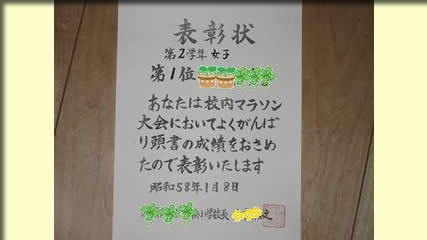 表彰状
第2学年 女子
第1位
あなたは校内マラソン
大会においてよくがんば
り頭書の成績をおさめ
たので表彰いたします
昭和58年1月8日
小学校長